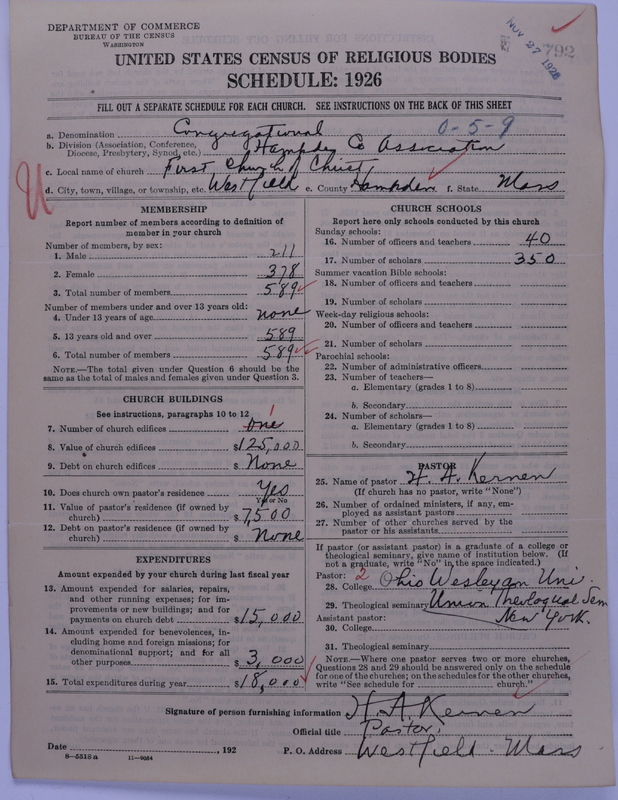 DEPARTMENT OF COMMERCE
BUREAU OF THE CENSUS
WASHINGTON
NOV 27 1926
792
UNITED STATES CENSUS OF RELIGIOUS BODIES
SCHEDULE: 1926
FILL OUT A SEPARATE SCHEDULE FOR EACH CHURCH. SEE INSTRUCTIONS ON THE BACK OF THIS SHEET
a. Denomination Congregational 0-5-9
b. Division (Association, Conference, Diocese, Presbytery, Synod, etc.) Hampden Co Association
c. Local name of church First Church of Christ
d. City, town, village, or township, etc. Westfield e. County Hampden f. State Mass
U
MEMBERSHIP
Report number of members according to definition of
member in your church
Number of members, by sex:
1. Male 211
2. Female 378
3. Total number of members 589
Number of members under and over 13 years old:
4. Under 13 years of age none
5. 13 years old and over 589
6. Total number of members 589
NOTE.—The total given under Question 6 should be the
same as the total of males and females given under Question 3.
CHURCH BUILDINGS
See instructions, paragraphs 10 to 12
7. Number of church edifices one 1
8. Value of church edifices $125,000
9. Debt on church edifices $ None
10. Does church own pastor's residence Yes
Yes or No
11. Value of pastor's residence (if owned by
church) $7,500
12. Debt on pastor's residence (if owned by
church) $ None
EXPENDITURES
Amount expended by your church during last fiscal year
13. Amount expended for salaries, repairs,
and other running expenses; for im-
provements or new buildings; and for
payments on church debt $15,000
14. Amount expended for benevolences, in-
cluding home and foreign missions; for
denominational support; and for all
other purposes $3,000
15. Total expenditures during year $18,000
CHURCH SCHOOLS
Report here only schools conducted by this church
Sunday schools:
16. Number of officers and teachers 40
17. Number of scholars 350
Summer vacation Bible schools:
18. Number of officers and teachers
19. Number of scholars
Week-day religious schools:
20. Number of officers and teachers
21. Number of scholars
Parochial schools:
22. Number of administrative officers
23. Number of teachers—
a. Elementary (grades 1 to 8)
b. Secondary
24. Number of scholars—
a. Elementary (grades 1 to 8)
b. Secondary
PASTOR
25. Name of pastor H. A. Kernen
(If church has no pastor, write "None")
26. Number of ordained ministers, if any, em-
ployed as assistant pastors
27. Number of other churches served by the
pastor or his assistants
If pastor (or assistant pastor) is a graduate of a college or
theological seminary, give name of institution below. (If
not a graduate, write "No" in the space indicated.)
Pastor: 2
28. College Ohio Wesleyan Uni
29. Theological seminary Union Theological Sem
New York.
Assistant pastor:
30. College
31. Theological seminary
NOTE.—Where one pastor serves two or more churches,
Questions 28 and 29 should be answered only on the schedule
for one of the churches; on the schedules for the other churches,
write "See schedule for church."
Signature of person furnishing information H. A. Kernen
Official title Pastor,
Date , 192 P. O. Address Westfield - Mass
8-5518 a 11-9054